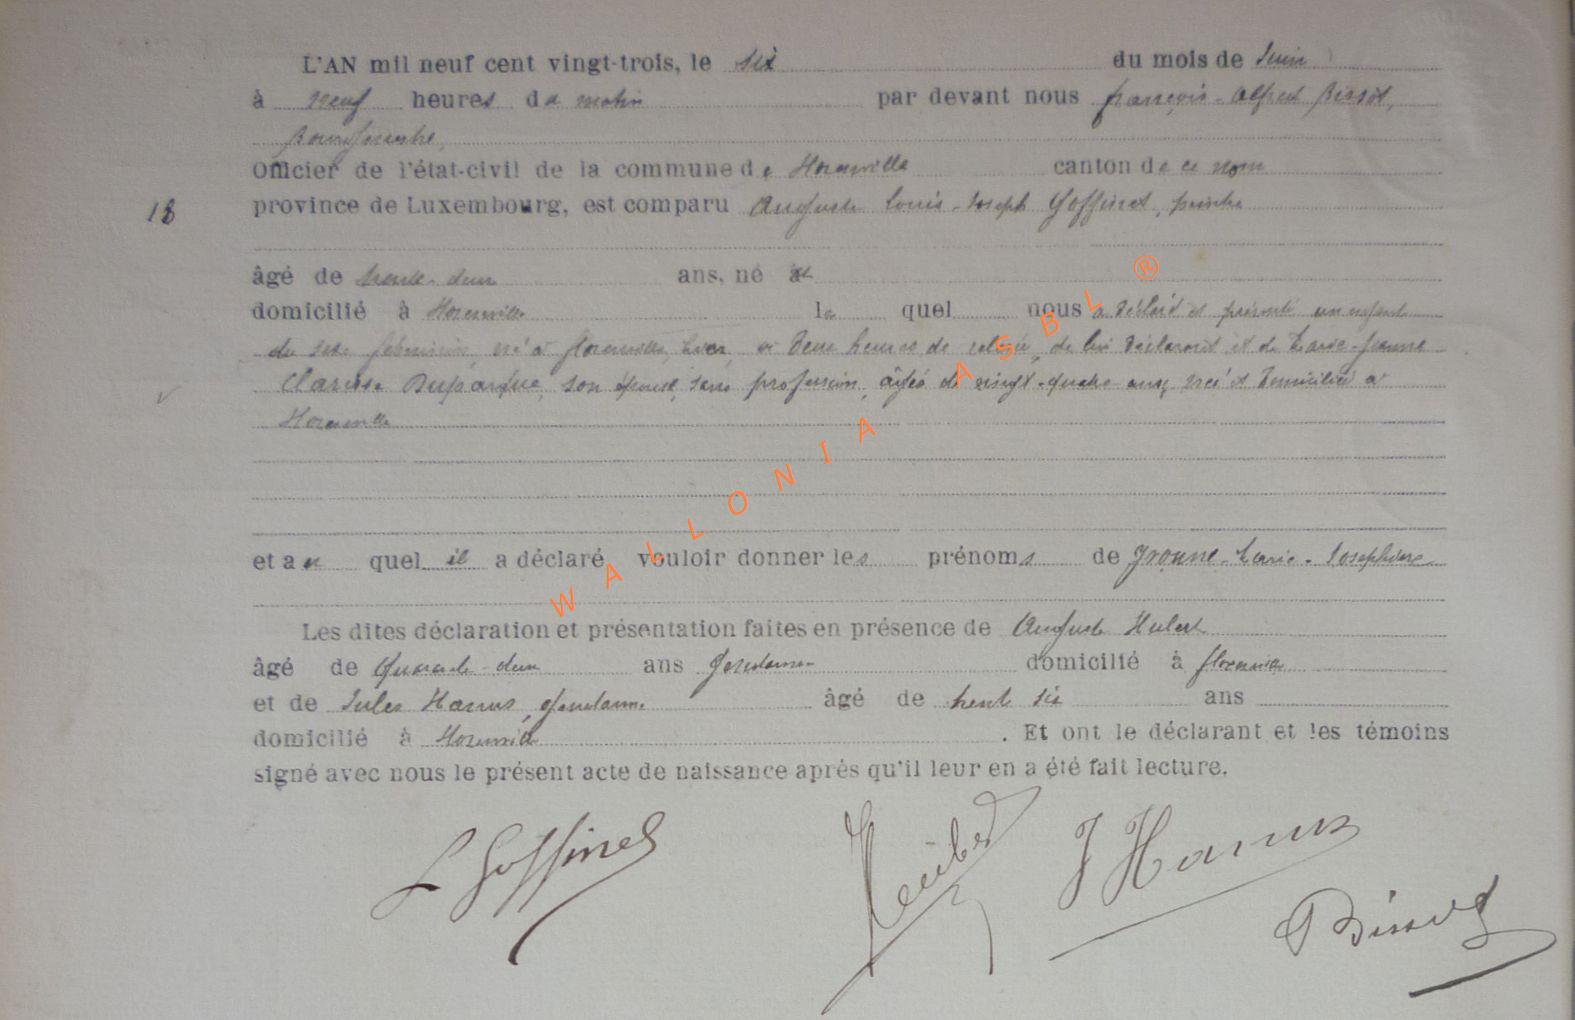 L'AN mil neuf cent vingt-trois, le six du mois de Juin
à neuf heures du matin par devant nous françois-Alfred Bissot,
Bourgmestre,
Officier de l'état-civil de la commune de Florenville canton de ce nom
18 province de Luxembourg, est comparu Auguste Louis-Joseph Goffinet, peintre
âgé de trente-deux ans, né à et
domicilié à Florenville le quel nous a déclaré et présenté un enfant
du sexe féminin, né à florenville, hier, à deux heures de relevée, de lui déclarant et de Marie-Jeanne
Clarisse Duparque, son épouse, sans profession, âgée de vingt-quatre ans, née et domiciliée à
Florenville
et au quel il a déclaré vouloir donner les prénoms de Yvonne-Marie-Joséphine
Les dites déclaration et présentation faites en présence de Auguste Hubert
âgé de quarante-deux ans gendarme domicilié à florenville
et de Jules Hanus, gendarme âgé de trente six ans
domicilié à Florenville . Et ont le déclarant et les témoins
signé avec nous le présent acte de naissance après qu'il leur en a été fait lecture.
L Goffinet Hubert J Hanus
Bissot
WALLONIA ASBL ®